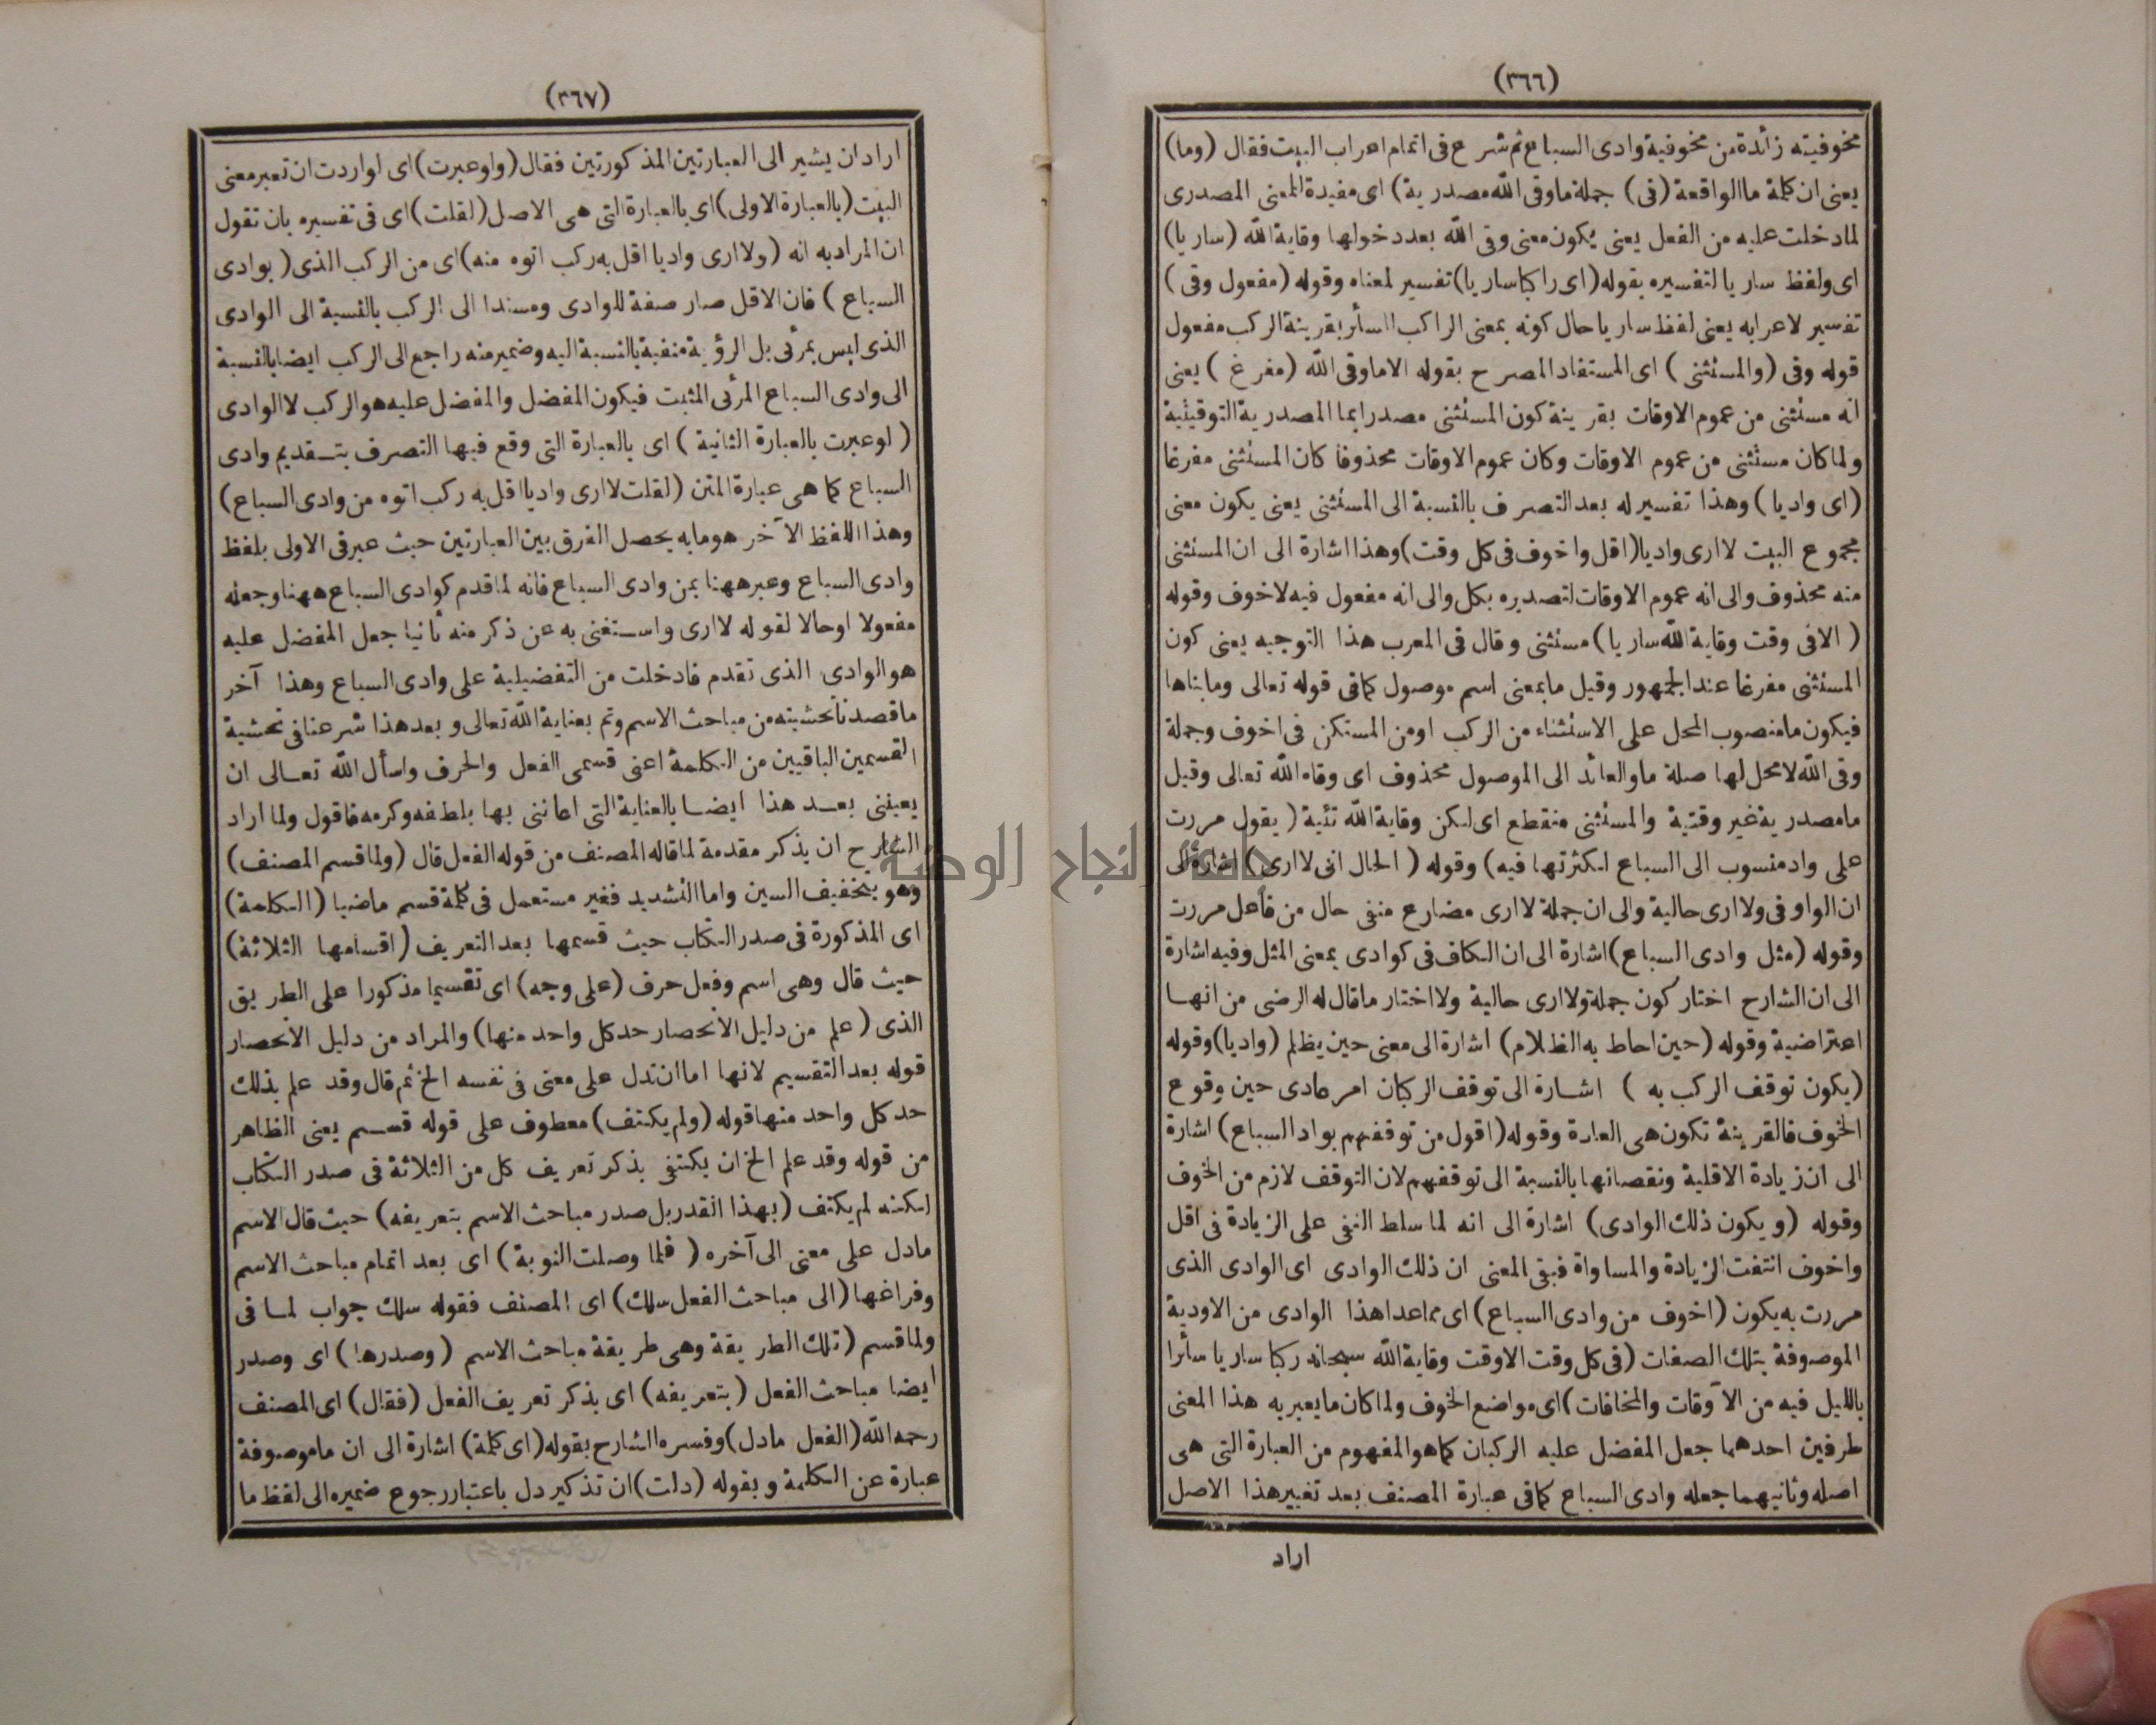 (٣٦٦)
مخوفيته زائدة من مخوفية وادى السباع ثم شرع فى اتمام اعراب البيت فقال (وما)
يعنى ان كلمة ما الواقعة (فى) جملة ما وقى الله مصدرية) اى مفيدة للمعنى المصدرى
لما دخلت عليه من الفعل يعنى يكون معنى وقى الله بعد دخولها وقاية الله (ساريا)
اى ولفظ ساريا لتفسيره بقوله (اى راكبا ساريا) تفسير لمعناه وقوله (مفعول وقى)
تفسير لاعرابه يعنى لفظ ساريا حال كونه بمعنى الراكب السائر بقرينة الركب مفعول
قوله وقى (والمستثنى) اى المستفاد المصرح بقوله الا ما وقى الله (مفرغ) يعنى
انه مستثنى من عموم الاوقات بقرينة كون المستثنى مصدرا بما المصدرية التوقيتية
ولما كان مستثنى من عموم الاوقات وكان عموم الاوقات محذوفا كان المستثنى مفرغا
(اى واديا) وهذا تفسير له بعد التصرف بالنسبة الى المستثنى يعنى يكون معنى
مجموع البيت لا ارى واديا (اقل واخوف فى كل وقت) وهذا اشارة الى ان المستثنى
منه محذوف والى انه عموم الاوقات لتصديره بكل والى انه مفعول فيه لاخوف وقوله
(الا فى وقت وقاية الله ساريا) مستثنى وقال فى المعرب هذا التوجيه يعنى كون
المستثنى مفرغا عند الجمهور وقيل ما بمعنى اسم موصول كما فى قوله تعالى وما بناها
فيكون ما منصوب المحل على الاستثناء من الركب او من المستكن فى اخوف وجملة
وقى الله لا محل لها صلة ما والعائد الى الموصول محذوف اى وقاه الله تعالى وقيل
ما مصدرية غير وقتية والمستثنى منقطع اى لكن وقاية الله تئية (يقول مررت
على واد منسوب الى السباع لكثرتها فيه) وقوله (الحال انى لا ارى) اشارة الى
ان الواو فى ولا ارى حالية والى ان جملة لا ارى مضارع منفى حال من فاعل مررت
وقوله (مثل وادى السباع) اشارة الى ان الكاف فى كوادى بمعنى المثل وفيه اشارة
الى ان الشارح اختار كون جملة ولا ارى حالية ولا اختار ما قال له الرضى من انها
اعتراضية وقوله (حين احاط به الظلام) اشارة الى معنى حين يظلم (واديا) وقوله
(يكون توقف الركب به) اشارة الى توقف الركبان امر عادى حين وقوع
الخوف فالقرينة تكون هى العادة وقوله (اقول من توقفهم بواد السباع) اشارة
الى ان زيادة الاقلية ونقصانها بالنسبة الى توقفهم لان التوقف لازم من الخوف
وقوله (ويكون ذلك الوادى) اشارة الى انه لما سلط النفى على الزيادة فى اقل
واخوف انتفت الزيادة والمساواة فبقى المعنى ان ذلك الوادى اى الوادى الذى
مررت به يكون (اخوف من وادى السباع) اى مما عدا هذا الوادى من الاودية
الموصوفة بتلك الصفات (فى كل وقت الا وقت وقاية الله سبحانه ركبا ساريا سائرا
بالليل فيه من الآوقات والمخافات) اى مواضع الخوف ولما كان ما يعبر به هذا المعنى
طرفين احدهما جعل المفضل عليه الركبان كما هو المفهوم من العبارة التى هى
اصله وثانيهما جعله وادى السباع كما فى عبارة المصنف بعد تغيير هذا الاصل
اراد
(٣٦٧)
اراد ان يشير الى العبارتين المذكورتين فقال (ولو عبرت) اى لو اردت ان تعبر معنى
البيت (بالعبارة الاولى) اى بالعبارة التى هى الاصل (لقلت) اى فى تفسيره بان تقول
ان المراد به انه (ولا ارى واديا اقل به ركب اتوه منه) اى من الركب الذى (بوادى
السباع) فان الاقل صار صفة للوادى ومسندا الى الركب بالنسبة الى الوادى
الذى ليس بمرئى بل الرؤية منفية بالنسبة اليه وضمير منه راجع الى الركب ايضا بالنسبة
الى وادى السباع المرئى المثبت فيكون المفضل والمفضل عليه هو الركب لا الوادى
(لو عبرت بالعبارة الثانية) اى بالعبارة التى وقع فيها التصرف بتقديم وادى
السباع كما هى عبارة المتن (لقلت لا ارى واديا اقل به ركب اتوه من وادى السباع)
وهذا اللفظ الآخر هو ما به يحصل الفرق بين العبارتين حيث عبر فى الاولى بلفظ
وادى السباع وعبر ههنا بمن وادى السباع فانه لما قدم كوادى السباع ههنا وجعله
مفعولا او حالا لقوله لا ارى واستغنى به عن ذكر منه ثانيا جعل المفضل عليه
هو الوادى الذى تقدم فادخلت من التفضيلية على وادى السباع وهذا آخر
ما قصدنا تحشيته من مباحث الاسم وتم بعناية الله تعالى وبعد هذا شرعنا فى تحشية
القسمين الباقيين من الكلمة اعنى قسمى الفعل والحرف واسأل الله تعالى ان
يعيننى بعد هذا ايضا بالعناية التى اعاننى بها بلطفه وكرمه فاقول ولما اراد
الشارح ان يذكر مقدمة لما قاله المصنف من قوله الفعل قال (ولما قسم المصنف)
وهو بتخفيف السين واما التشديد فغير مستعمل فى كلمة قسم ماضيا (الكلمة)
اى المذكورة فى صدر الكتاب حيث قسمها بعد التعريف (اقسامها الثلاثة)
حيث قال وهى اسم وفعل حرف (على وجه) اى تقسيما مذكورا على الطريق
الذى (علم من دليل الانحصار حد كل واحد منها) والمراد من دليل الانحصار
قوله بعد التقسيم لانها اما ان تدل على معنى فى نفسه الخ ثم قال وقد علم بذلك
حد كل واحد منها قوله (ولم يكتف) معطوف على قوله قسم يعنى الظاهر
من قوله وقد علم الخ ان يكتفى بذكر تعريف كل من الثلاثة فى صدر الكتاب
لكنه لم يكتف (بهذا القدر بل صدر مباحث الاسم بتعريفه) حيث قال الاسم
ما دل على معنى الى آخره (فلما وصلت النوبة) اى بعد اتمام مباحث الاسم
وفراغها (الى مباحث الفعل سلك) اى المصنف فقوله سلك جواب لما فى
ولما قسم (تلك الطريقة وهى طريقة مباحث الاسم (وصدرها) اى وصدر
ايضا مباحث الفعل (بتعريفه) اى بذكر تعريف الفعل (فقال) اى المصنف
رحمه الله (الفعل ما دل) وفسره الشارح بقوله (اى كلمة) اشارة الى ان ما موصوفة
عبارة عن الكلمة وبقوله (دلت) ان تذكير دل باعتبار رجوع ضميره الى لفظ ما
جامعة النجاح الوطنية